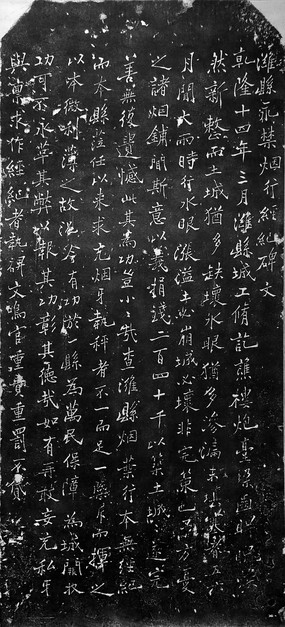 濰縣永禁烟行經紀碑文
乾隆十四年三月濰縣城工脩訖譙樓炮臺垛齒睥睨焕
然新整而土城猶多缺壞水眼猶多滲漏未填塞者五六
月間大雨時行水眼漲溢土必崩城必壞非完策也予方憂
之諸烟鋪聞斯意以義捐錢二百四十千以築土城城遂完
善無復遺憾此其為功豈小小哉查濰縣烟葉行本無經紀
而本縣莅任以來求充烟牙執秤者不一而足一槩斥而揮之
以本微利薄之故況今有功於一縣為萬民保障為城闕收
功可不永革其弊以報其功彰其德哉如有再敢妄充私牙
與禀求作經紀者執碑文鳴官重責重罰不貸